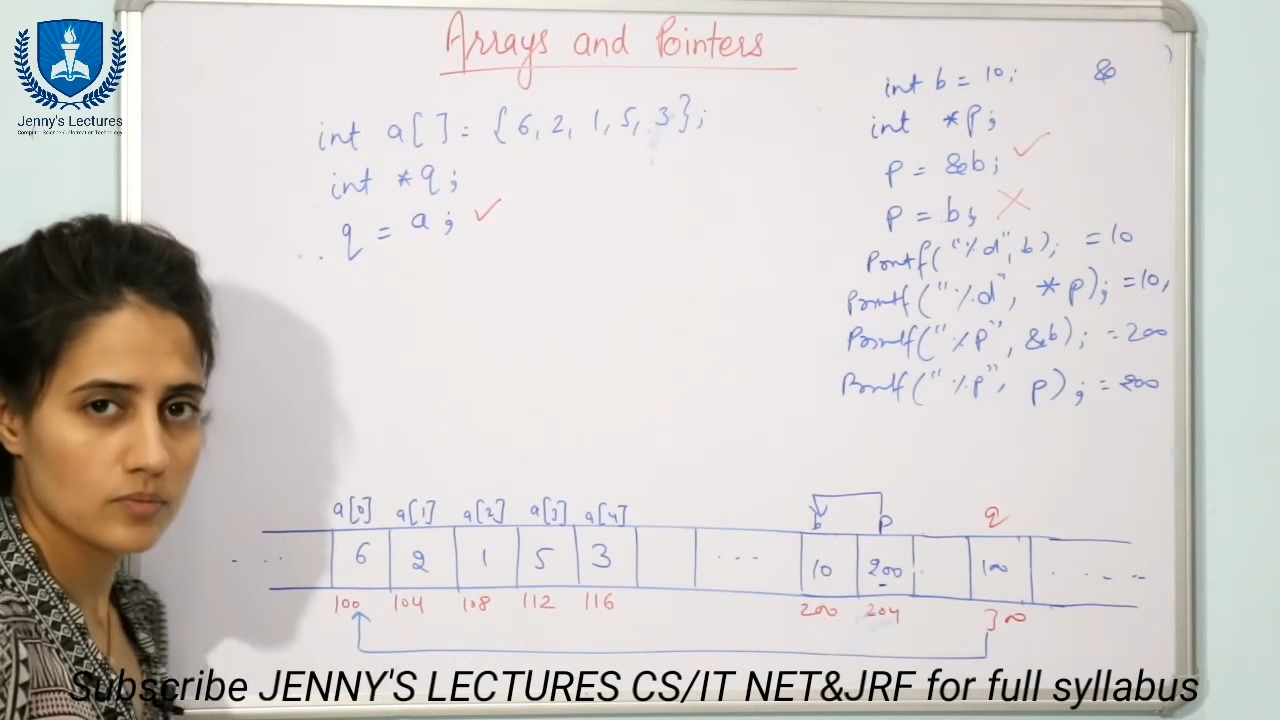 Jenny's Lectures
Computer Science/Information Technology
Arrays and Pointers
int a[] = {6, 2, 1, 5, 3};
int *q;
q = a; ✓
int b = 10; &
int *p;
p = &b; ✓
p = b; ✗
Printf("%d", b); = 10
Printf("%d", *p); = 10,
Printf("%p", &b); = 200
Printf("%p", p); = 200
a[0] a[1] a[2] a[3] a[4] b p q
.. 6 2 1 5 3 ... 10 200 100 ....
100 104 108 112 116 200 204 300
Subscribe JENNY'S LECTURES CS/IT NET&JRF for full syllabus